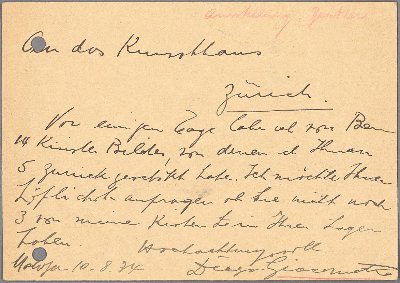 An das Kunsthaus
Zürich.
Vor einigen Tage habe ich von Bern
14 Kinster Bilder, von denen ich Ihnen
5 zurück geschikt habe. Ich möchte Ihnen
höflichst anfragen ob Sie nicht noch
3 von meine Kisten in Ihren Lager
haben.
Hochachtungsvoll
Maloja 10.8.34 Diego Giacometti